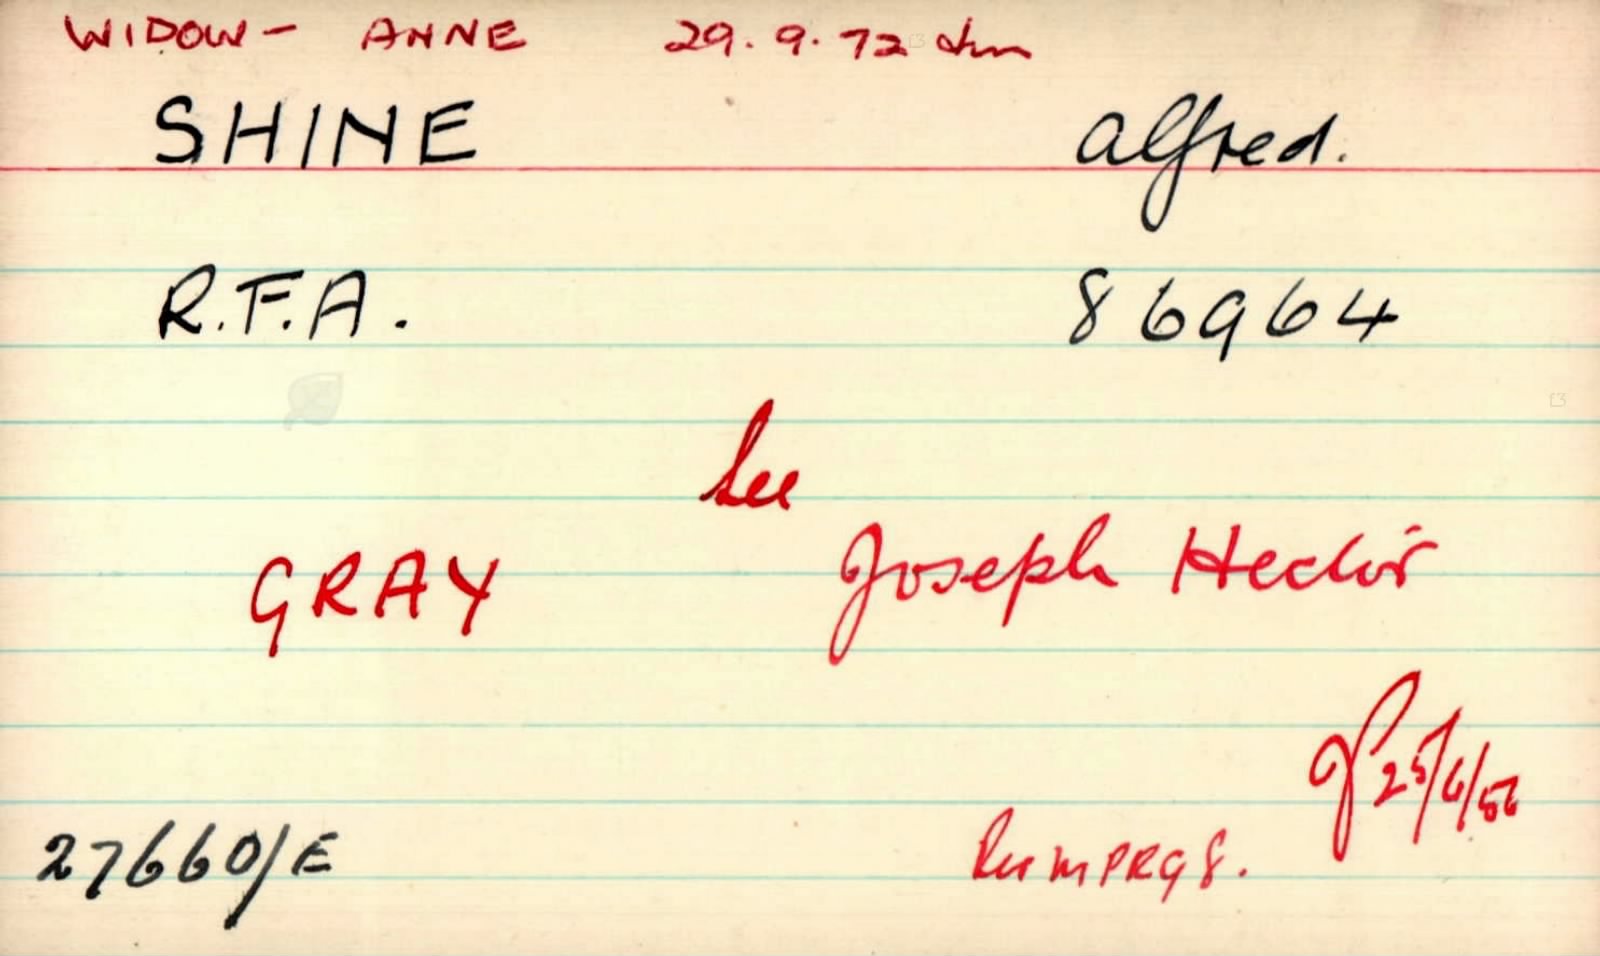 WIDOW - ANNE 29.9.72
SHINE Alfred.
R.F.A. 86964
See
GRAY Joseph Hector
25/6/56
27660/E